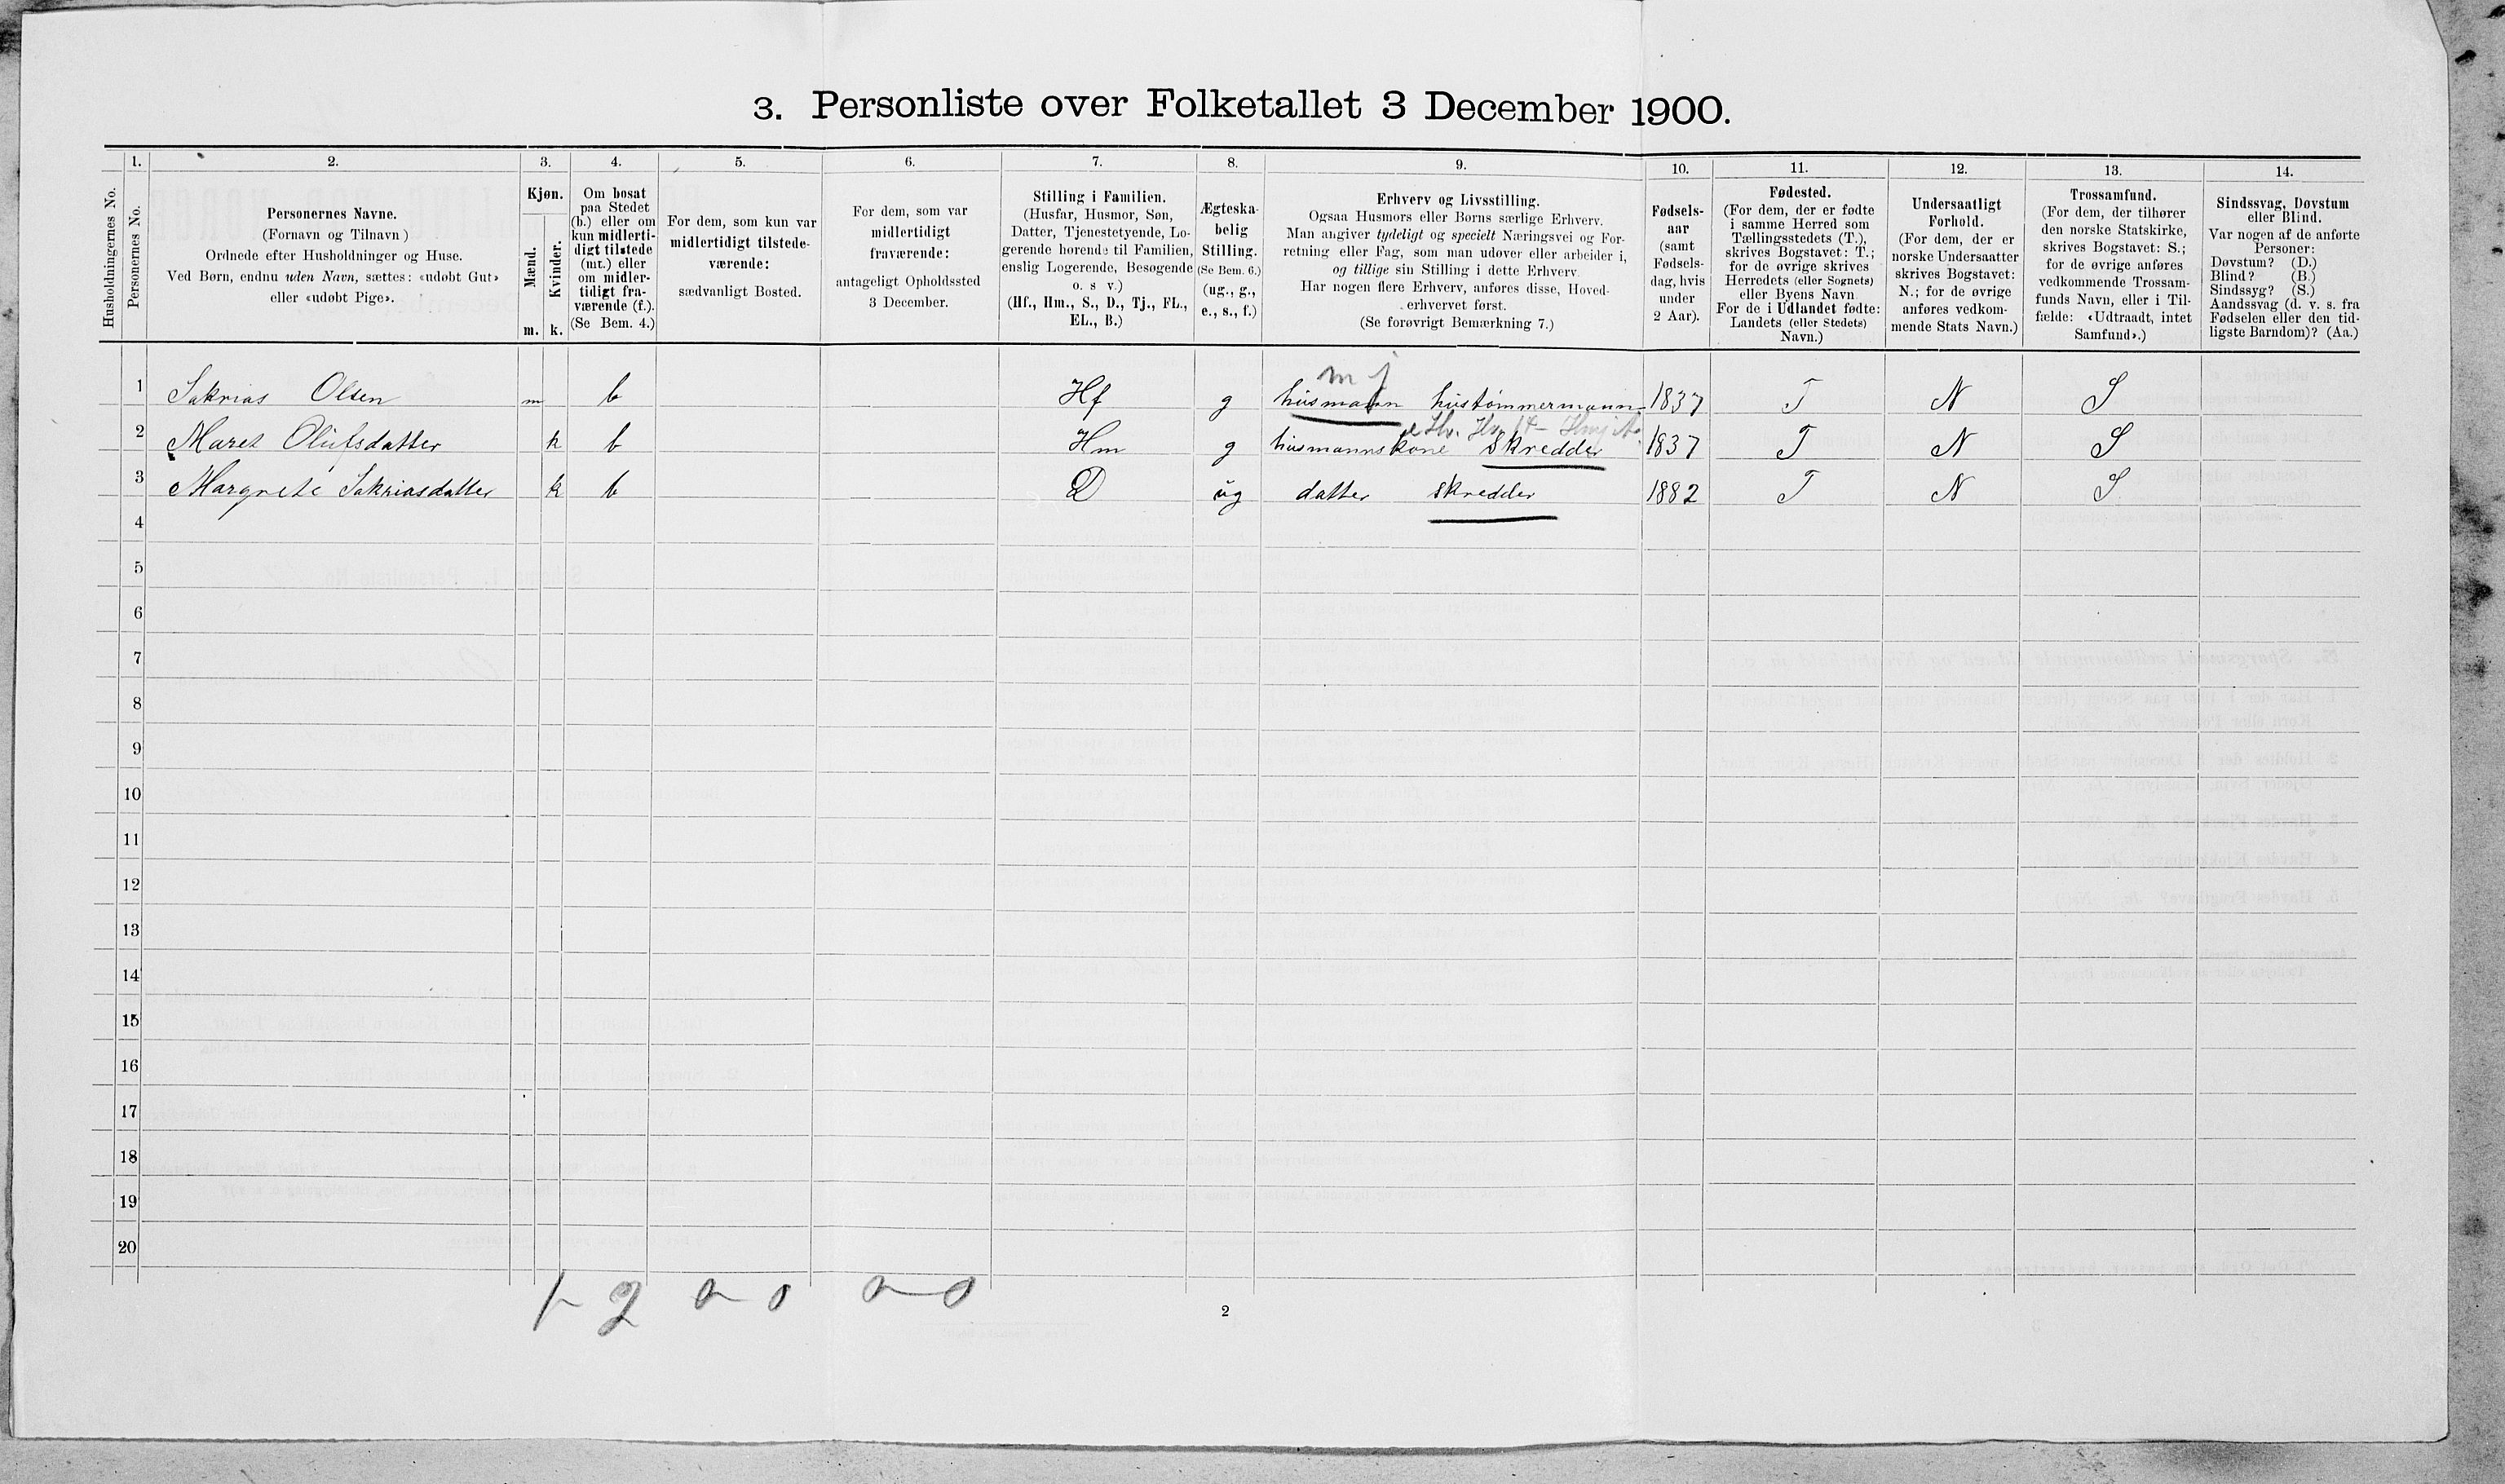 3. Personliste over Folketallet 3 December 1900.
Husholdningernes No.
1.
Personernes No.
2.
Personernes Navne.
(Fornavn og Tilnavn)
Ordnede efter Husholdninger og Huse.
Ved Børn, endnu uden Navn, sættes: «udøbt Gut»
eller «udøbt Pige».
3.
Kjøn.
Mænd.
Kvinder.
m. k.
4.
Om bosat
paa Stedet
(b.) eller om
kun midlerti-
digt tilstede
(mt.) eller
om midler-
tidigt fra-
værende (f.).
(Se Bem. 4.)
5.
For dem, som kun var
midlertidigt tilstede-
værende:
sædvanligt Bosted.
6.
For dem, som var
midlertidigt
fraværende:
antageligt Opholdssted
3 December.
7.
Stilling i Familien.
(Husfar, Husmor, Søn,
Datter, Tjenestetyende, Lo-
gerende hørende til Familien,
enslig Logerende, Besøgende
o. s v.)
(Hf., Hm., S., D., Tj., FL.,
EL., B.)
8.
Ægteska-
belig
Stilling.
(Se Bem. 6.)
(ug., g.,
e., s., f.)
9.
Erhverv og Livsstilling.
Ogsaa Husmors eller Børns særlige Erhverv.
Man angiver tydeligt og specielt Næringsvei og For-
retning eller Fag, som man udøver eller arbeider i,
og tillige sin Stilling i dette Erhverv.
Har nogen flere Erhverv, anføres disse, Hoved-
erhvervet først.
(Se forøvrigt Bemærkning 7.)
10.
Fødsels-
aar
(samt
Fødsels-
dag, hvis
under
2 Aar).
11.
Fødested.
(For dem, der er fødte
i samme Herred som
Tællingsstedets (T.),
skrives Bogstavet: T.;
for de øvrige skrives
Herredets (eller Sognets)
eller Byens Navn
For de i Udlandet fødte:
Landets (eller Stedets)
Navn.)
12.
Undersaatligt
Forhold.
(For dem, der er
norske Undersaatter
skrives Bogstavet:
N.; for de øvrige
anføres vedkom-
mende Stats Navn.)
13.
Trossamfund.
(For dem, der tilhører
den norske Statskirke,
skrives Bogstavet: S.;
for de øvrige anføres
vedkommende Trossam-
funds Navn, eller i Til-
fælde: «Udtraadt, intet
Samfund».)
14.
Sindssvag, Døvstum
eller Blind.
Var nogen af de anførte
Personer:
Døvstum? (D.)
Blind? (B.)
Sindssyg? (S.)
Aandssvag (d. v. s. fra
Fødselen eller den tid-
ligste Barndom)? (Aa.)
m j
1 Sakrias Olsen m b Hf g husmann hustømmermann 1837 T N S
2 Maret Olüfsdatter k b Hm g husmannskone Skredder 1837 T N S
3 Margrete Sakriasdatter k b D üg datter skredder 1882 T N S
4
5
6
7
8
9
10
11
12
13
14
15
16
17
18
19
20
1 2 0 0 0 0
2